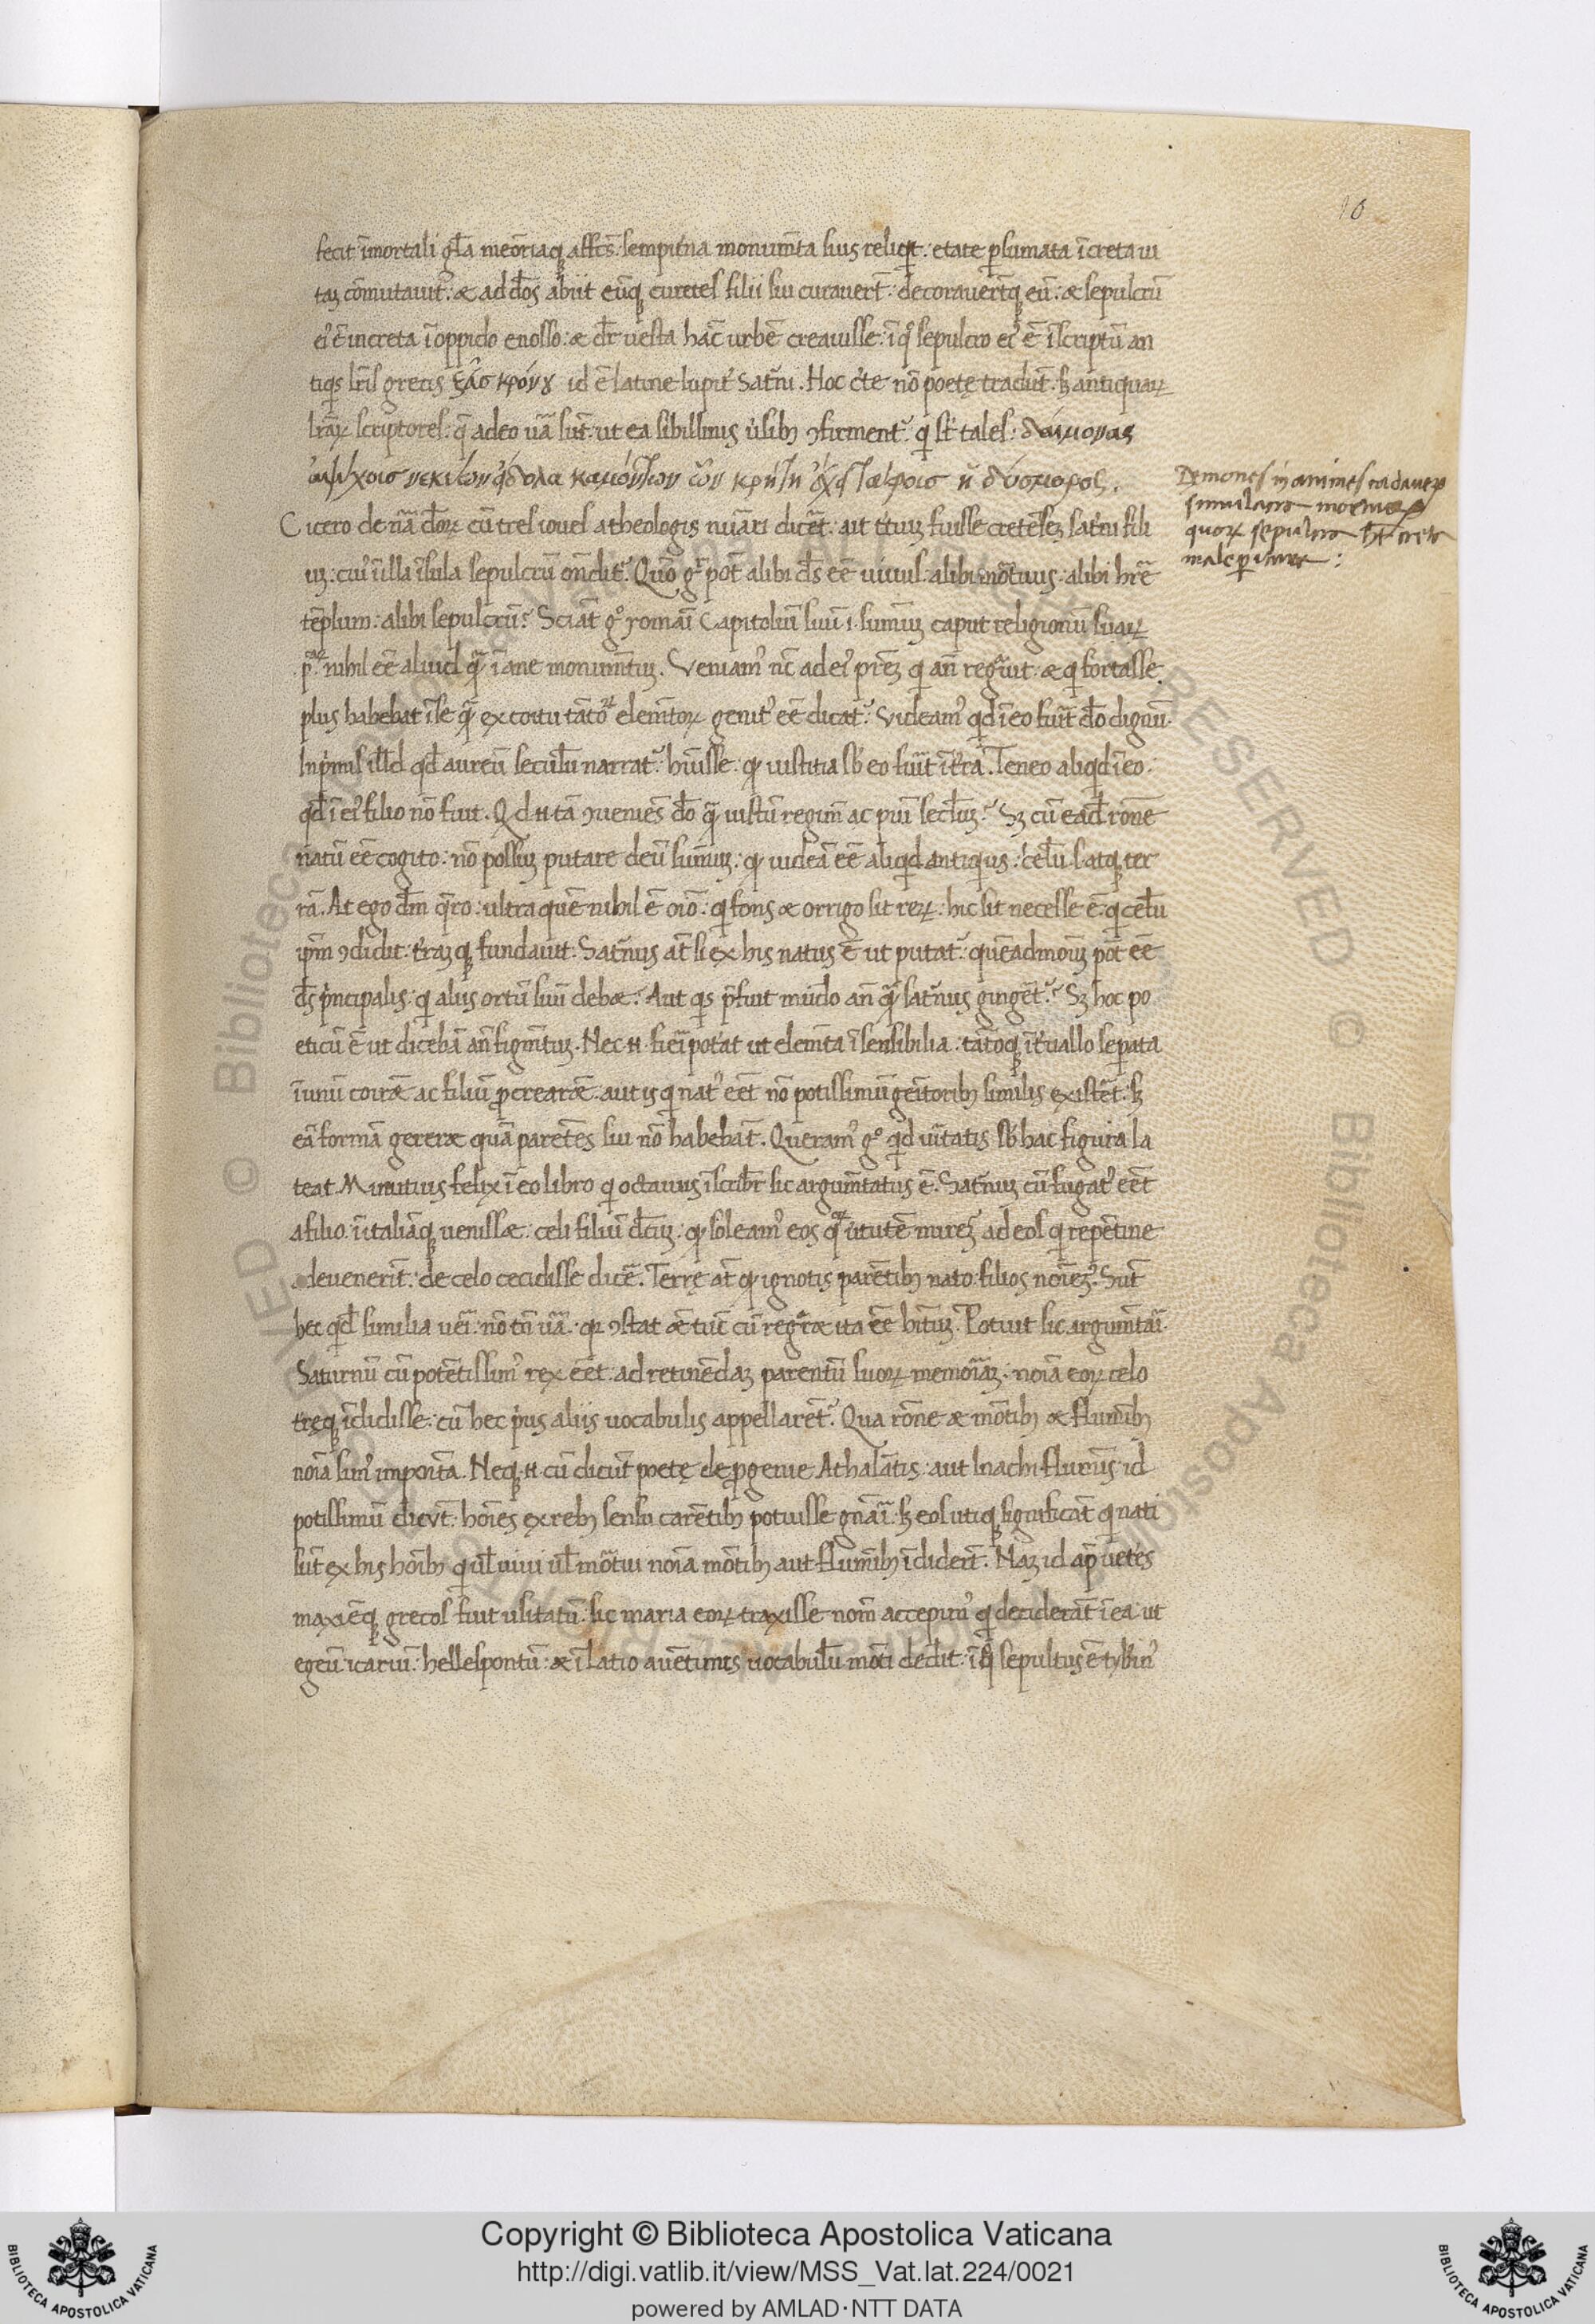 10
fecit īmortali gl̄a meōriaq; affcs̄. sempit̾na monum̄ta suis reliqͥt. etate ꝑsumata īcreta ui
taꝫ cōmutauit. æ ad dōs abiit eūq; curetes filii sui curauer̄t. decorauer̄tq; eū. æ sepulcrū
eiꝰ ē in creta ī oppido enosso. æ dr̄ uesta hāc urbē creauisse. ī qͦ sepulcro eiꝰ ē īscriptū an
tiqͥs lr̄is grecis ζὰσ κρόνȣ id ē latine Iupit̾ Sat̾ni. Hoc c̾te nō poetę tradūt. sꝫ antiquaꝝ
lr̄aꝝ scriptores. q̄ adeo ūa sūt. ut ea sibillinis ủsibꝫ ꝯfirment᷑. qͥ st̄ tales. δαίμονας
Demones inanimes cadaueꝝ
simulacra mortuoꝝ
quoꝝ sepulcra
Cicero de nā dōꝝ cū tres ioues a theologis nūari dicēt. ait t̾tiuꝫ fuisse cretēseꝫ sat̾ni fili
uꝫ. cuiꝰ ī illa īsula sepulcrū ōndit᷑. Quō gͦ pōt alibi ds̄ eē uiuus. alibi mōtuus. alibi hr̄e
tēplum. alibi sepulcrū? Sciāt gͦ romāi Capitoliū suū .i. summū caput religionū suaꝝ
nihil eē aliud qͣ̄ īane monum̄tuꝫ. Veniamꝰ nc̄ ad eiꝰ pr̄eꝫ qͥ an̄ regͣuit. æ qͥ fortasse
plus habebat ī se qͣ̄ ex coitu tātoꝝ elem̄toꝝ genitꝰ eē dicat᷑. Videamꝰ qͥd ī eo fuit dō dignū.
Inpͥmis ill̄d qd̄ aureū seculū narrat᷑ hūisse. qꝙ iustitia sb̾ eo fuit ī t̾ra. Teneo aliqͥd ī eo.
qd̄ ī eiꝰ filio nō fuit. Qͥd n. tā ꝯueniēs dō qͣ̄ iustū regim̄ ac piū secl̄uꝫ? Sꝫ cū eād̄ rōne
natū eē cogito. nō possuꝫ putare deū summū. qꝙ uideā eē aliqͥd antiqͥus. celū .s. atq; ter
rā. At ego dm̄ q̄ro. ultra quē nihil ē oīo. qͥ fons æ orrigo sit reꝝ. hic sit necesse ē. qͥ celū
ip̄m ꝯdidit. t̾raꝫq; fundauit. Sat̾nus at̄ si ex his natus ē ut putat᷑. quēadmoduꝫ pōt eē
ds̄ pͥncipalis. qͥ aliis ortū suū debæt? Aut qͥs p̄fuit mūdo an̄ qͣ̄ sat̾nus gingēt᷑? Sꝫ hoc po
eticū ē ut dicebā an̄ figm̄tuꝫ. Nec n. fieri pot̾at ut elem̄ta īsensibilia. tātoq; īt̾uallo seꝑata
ī unū coirēt ac filiū ꝓcrearēt. aut is qͥ natꝰ eēt nō potissimū geītoribꝫ similis existēt. sꝫ
eā formā gereræt quā parētes sui nō habebāt. Queramꝰ gͦ qͥd ūitatis sb̾ hac figura la
teat. Minutius felix ī eo libro qͥ octauius īscribr̄ sic argum̄tatus ē. Sat̾nuꝫ cū fugatꝰ eēt
a filio. ī italiāq; uenissæt. celi filiū dc̄uꝫ. qꝙ soleamꝰ eos qͦꝝ ủtutē miremꝰ ad eos qͥ repētine
aduenerīt. de celo cecidisse dicē. Terrę at̄ qꝙ ignotis parētibꝫ natos filios noīeꝫꝰ. Sūt
hec qͥd̄ similia ueri. nō tn̄ ūa. qꝛ ꝯstat æt̄ tūc cū regͣræt ita eē hītuꝫ. Potuit sic argum̄tari.
Saturnū cū potētissimꝰ rex eēt. ad retinēdaꝫ parentū suoꝝ memoriaꝫ. noīa eoꝝ celo
t̾ręq; īdidisse. cū hec pͥus aliis uocabulis appellarēt᷑. Qua rōne æ mōtibꝫ æ flumībꝫ
noīa sumꝰ imposita. Neq; n. cū dicūt poetę de ꝓgenie Athalātis. aut Inachi flumīs. id
potissimū dicūt. hoīes ex rebꝫ sensu carētibꝫ potuisse gn̄ari. sꝫ eos utiq; significāt qͥ nati
sūt ex his hoībꝫ qͥ ul̄ uiui ul̄ mōtui noīa mōtibꝫ aut flumībꝫ īdiderīt. Naꝫ id ap̄ uet̾es
maxīēq; grecos fuit usitatū. sic maria eoꝝ traxisse nom̄ accepimꝰ qͥ deciderāt ī ea. ut
egeū. icariū. hellespontū. æ ī latio auētinus uocabulū mōti dedit. ī qͦ sepultus ē. tyb̾inꝰ
Copyright © Biblioteca Apostolica Vaticana
http://digi.vatlib.it/view/MSS_Vat.lat.224/0021
powered by AMLAD·NTT DATA
BIBLIOTECA APOSTOLICA VATICANA
BIBLIOTECA APOSTOLICA VATICANA